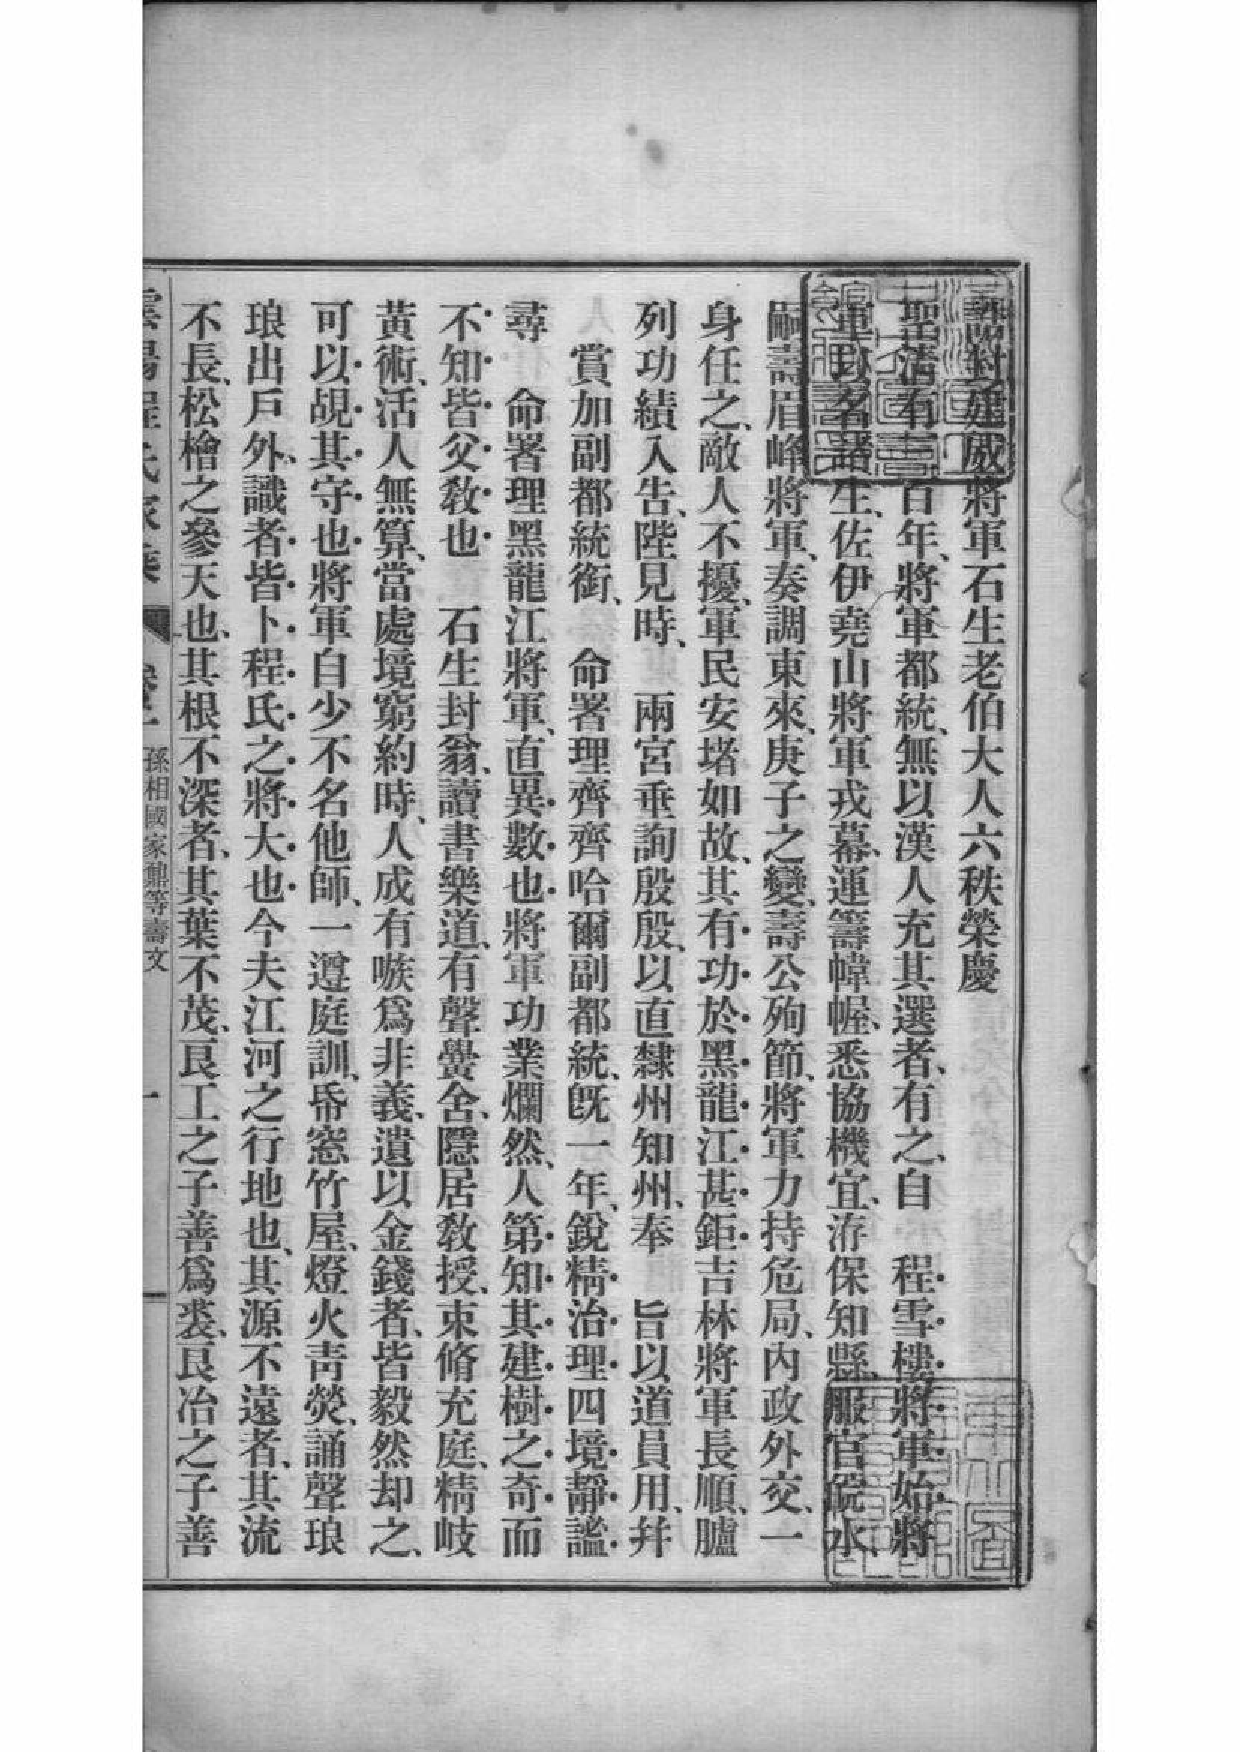 誥封建威將軍石生老伯大人六秩榮慶
聖清有二百年、將軍都統、無以漢人充其選者、有之、自　程雪樓將軍始、將
軍以名諸生、佐伊堯山將軍戎幕、運籌幃幄、悉協機宜、洊保知縣、服官皖水、
嗣壽眉峰將軍、奏調東來、庚子之變、壽公殉節、將軍力持危局、內政外交、一
身任之、敵人不擾、軍民安堵如故、其有功於黑龍江甚鉅、吉林將軍長順、臚
列功績入告、陛見時、　兩宮垂詢殷殷、以直隸州知州、奉　旨以道員用、幷
　賞加副都統銜、　命署理齊齊哈爾副都統、旣一年、銳精治理、四境靜謐、
尋　命署理黑龍江將軍、直異數也、將軍功業爛然、人第知其建樹之奇、而
不知皆父敎也　石生封翁、讀書樂道、有聲黌舍、隱居敎授、束脩充庭、精岐
黃術、活人無算、當處境窮約時、人成有嗾爲非義、遺以金錢者、皆毅然却之、
可以覘其守也、將軍自少不名他師、一遵庭訓、帋窓竹屋、燈火靑熒、誦聲琅
琅出戶外、識者皆卜程氏之將大也、今夫江河之行地也、其源不遠者、其流
不長、松檜之參天也、其根不深者、其葉不茂、良工之子善爲裘、良冶之子善
孫相國家鼐等壽文
一